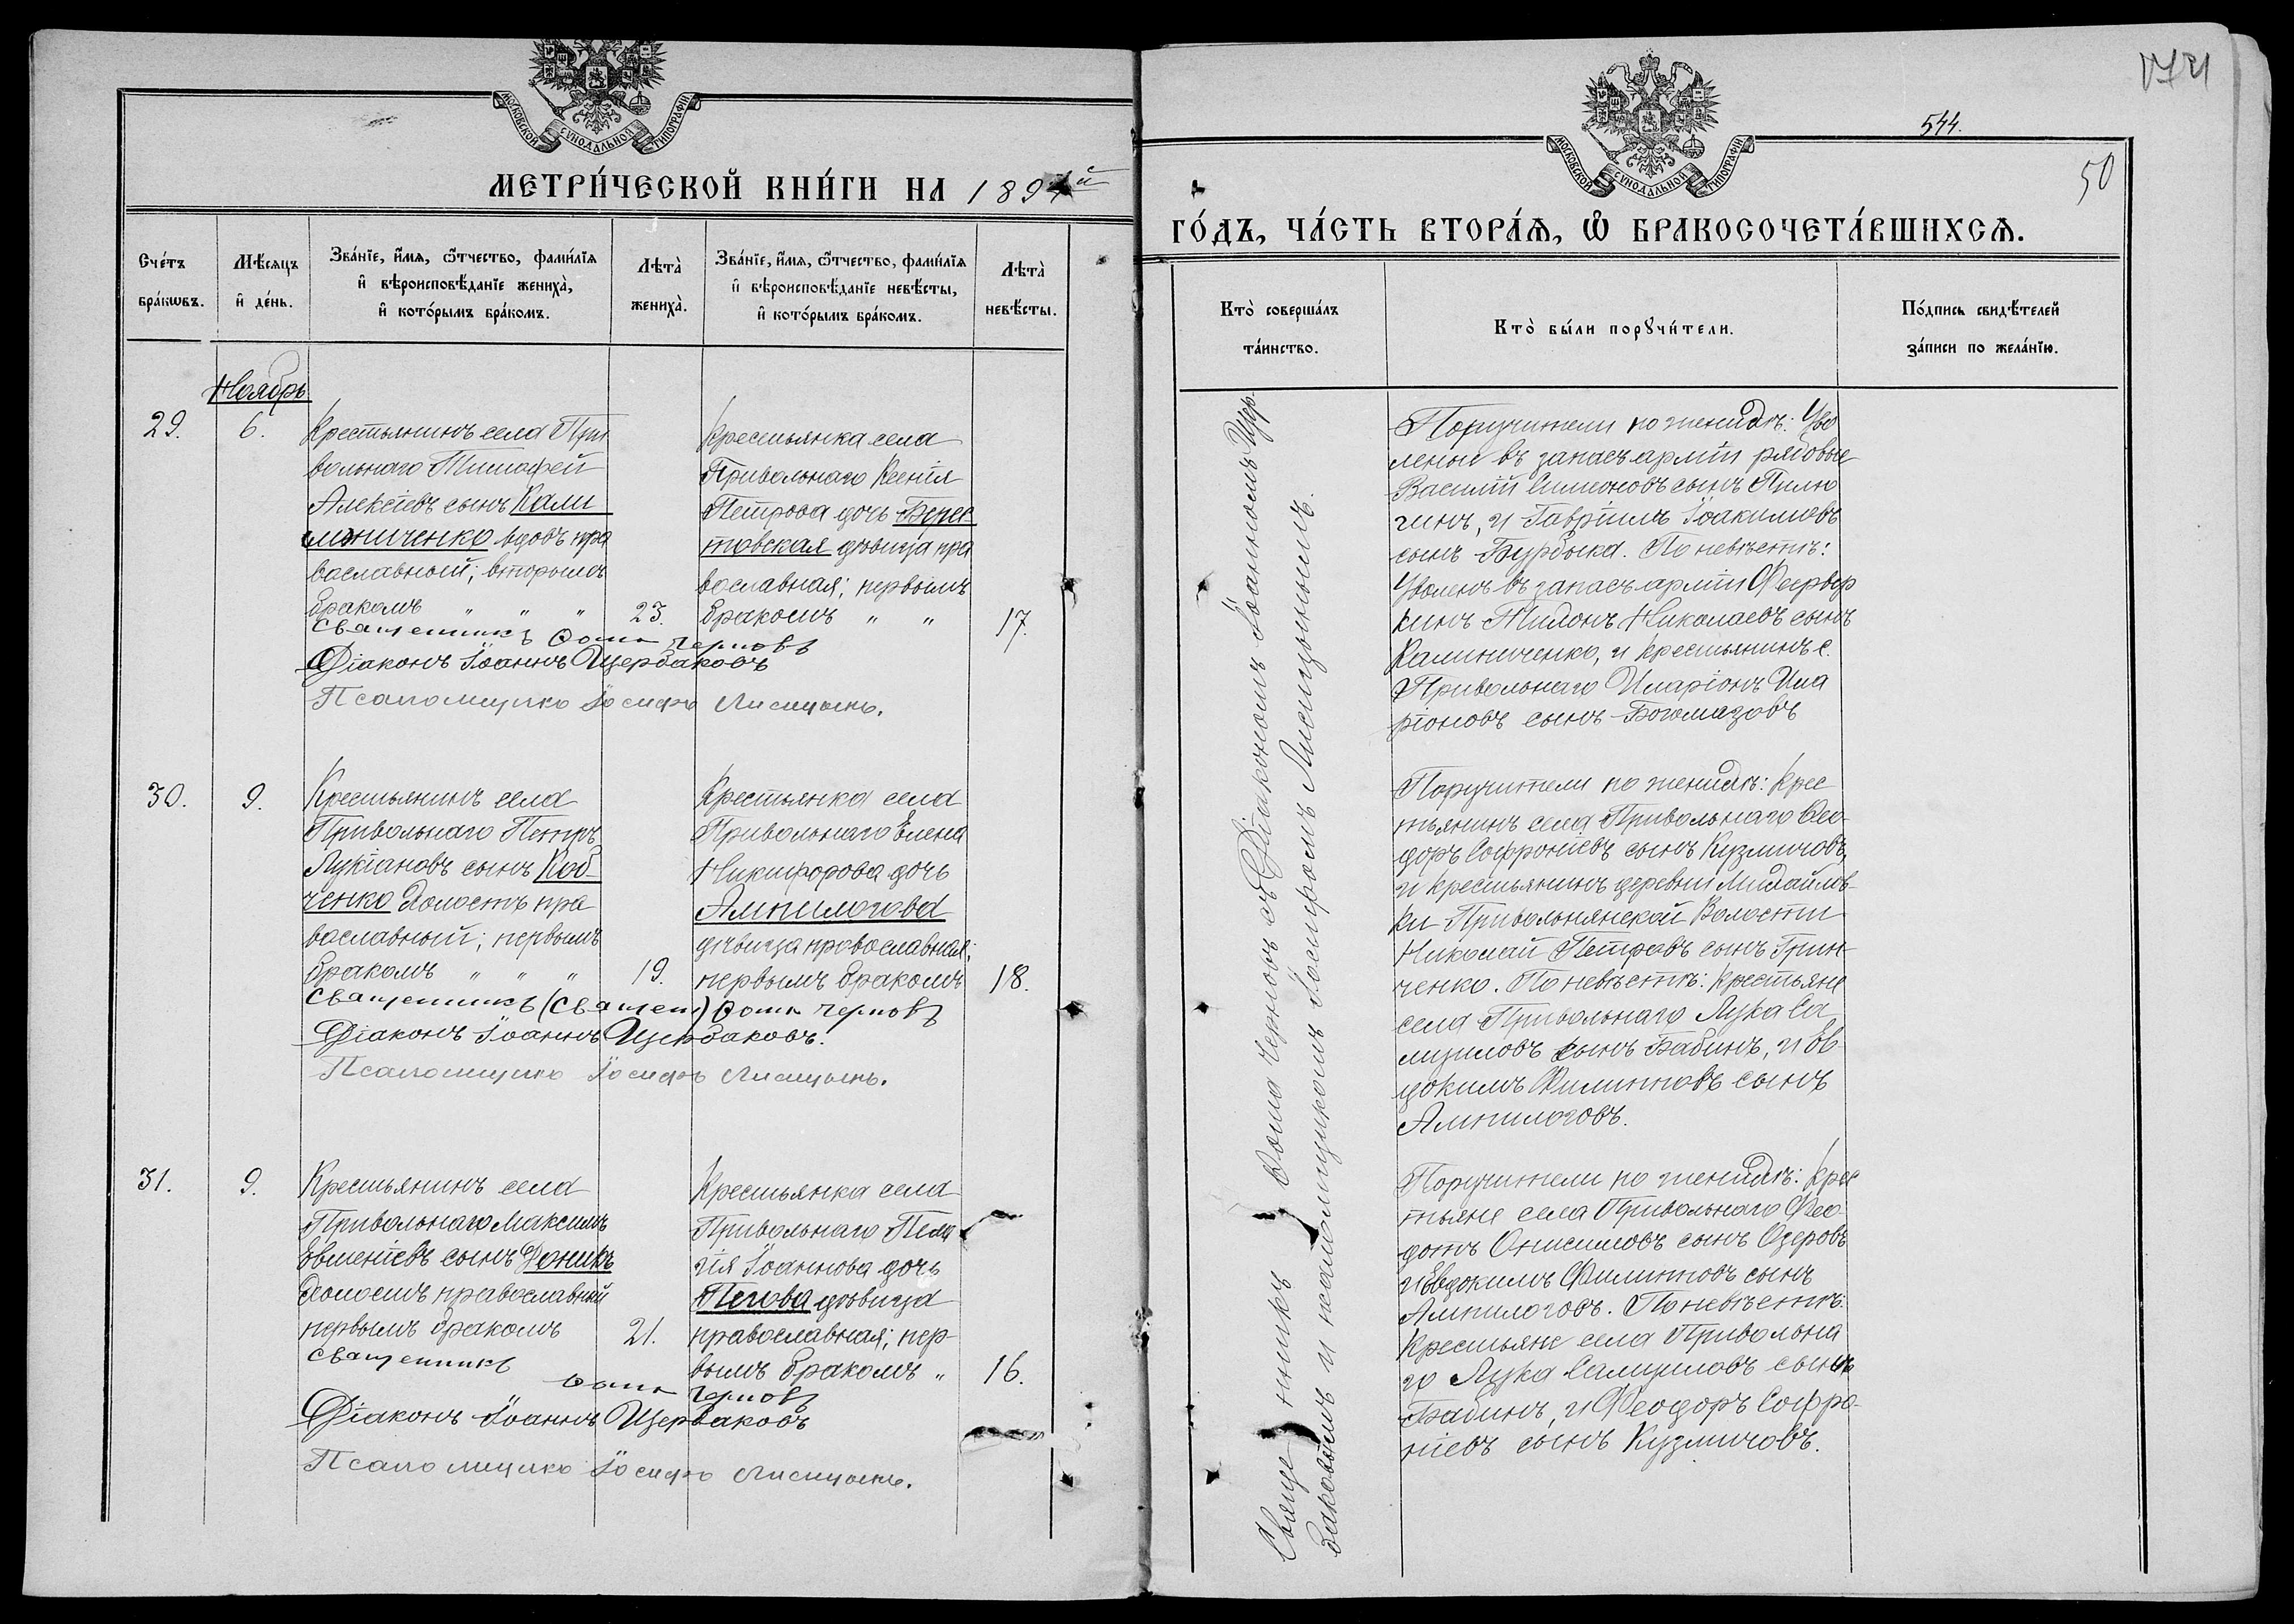 МОСКОВСКОЙ СѴНОДАЛЬНОЙ ТИПОГРАФІИ
МЕТРИ́ЧЕСКОЙ КНИ́ГИ НА 189 й
Сче́тъ бра́кωвъ.
Мѣ́сяцъ и де́нь.
Зва́нїе, и́мя, ѿтчество, фами́лїя
и вѣроисповѣ́данїе жениха̀,
и кото́рымъ бра́комъ.
Лѣта̀ жениха̀.
Зва́нїе, и́мя, ѿтчество, фами́лїя
и вѣроисповѣ́данїе невѣ́сты,
и кото́рымъ бра́комъ.
Лѣта̀ невѣ́сты.
Ноябрь
29.
6.
Крестьянинъ села При
вольнаго Тимофей
Алексіевъ сынъ Кали
ниченко вдовъ пра
вославный; вторымъ
бракомъ " " "
23.
Крестьянка села
Привольнаго Ксенія
Петрова дочь Берес
товская дѣвица пра
вославная; первымъ
бракомъ " "
17.
Священникъ Ѳома Черновъ
Діаконъ Іоаннъ Щербаковъ
Псаломщикъ Іосифъ Лисицынъ.
30.
9.
Крестьянинъ села
Привольнаго Петръ
Лукіановъ сынъ Коб-
ченко холостъ пра
вославный; первымъ
бракомъ " " "
19.
Крестьянка села
Привольнаго Елена
Никифорова дочь
Ампилогова
дѣвица православная;
первымъ бракомъ
18.
Священникъ (Священ) Ѳома Черновъ
Діаконъ Іоаннъ Щербаковъ.
Псаломщикъ Іосифъ Лисицынъ.
31.
9.
Крестьянинъ села
Привольнаго Максимъ
Евменіевъ сынъ Доникъ
холостъ православный
первымъ бракомъ
21.
Крестьянка села
Привольнаго Пела
гія Іоаннова дочь
Пегова дѣвица
православная; пер-
вымъ бракомъ "
16.
Священникъ
Ѳома Черновъ
Діаконъ Іоаннъ Щербаковъ
Псаломщикъ Іосифъ Лисицынъ.
МОСКОВСКОЙ СѴНОДАЛЬНОЙ ТИПОГРАФІИ
544.
50
ГО́ДЪ, ЧА́СТЬ ВТОРА́Я, Ѽ БРАКОСОЧЕТА́ВШИХСЯ.
Кто̀ соверша́лъ та́инство.
Кто̀ бы́ли порꙋчи́тели.
По́дпись свидѣ́телей за́писи по жела́нїю.
Священникъ Ѳома Черновъ съ Діакономъ Іоанномъ Щер-
баковымъ и псаломщикомъ Іосифомъ Лисицынымъ.
Поручители по женихѣ: Уво
лены въ запасъ арміи рядовые
Василій Симеоновъ сынъ Пилю
гинъ, и Гавріилъ Іоакимовъ
сынъ Бурдыка. По невѣстѣ:
Уволенъ въ запасъ арміи Феервер
керъ Милонъ Николаевъ сынъ
Калиниченко, и крестьянинъ с.
Привольнаго Иларіонъ Ила
ріоновъ сынъ Богомазовъ
Поручители по женихѣ: Крес
тьянинъ села Привольнаго Ѳео-
доръ Софроніевъ сынъ Кузмичовъ,
и крестьянинъ деревни Михайлов-
ки Привольнянской Волости
Николай Петровъ сынъ Грин-
ченко. По невѣстѣ: крестьяне
села Привольнаго Лука Са
муиловъ сынъ Бабинъ, и Ев-
докимъ Филипповъ сынъ
Ампилоговъ.
Поручители по женихѣ: крес
тьяне села Привольнаго Ѳео-
дотъ Онисимовъ сынъ Озеровъ
и Евдокимъ Филипповъ сынъ
Ампилоговъ. По невѣстѣ:
Крестьяне села Привольна
го Лука Самуиловъ сынъ
Бабинъ, и Ѳеодоръ Софро-
ніевъ сынъ Кузмичовъ.